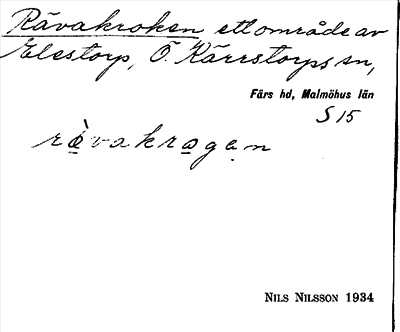 Rävakroken ett område av
Elestorp, Ö. Kärrstorps sn,
Färs hd, Malmöhus län
S 15
ræ̀vakrogen
NILS NILSSON 1934